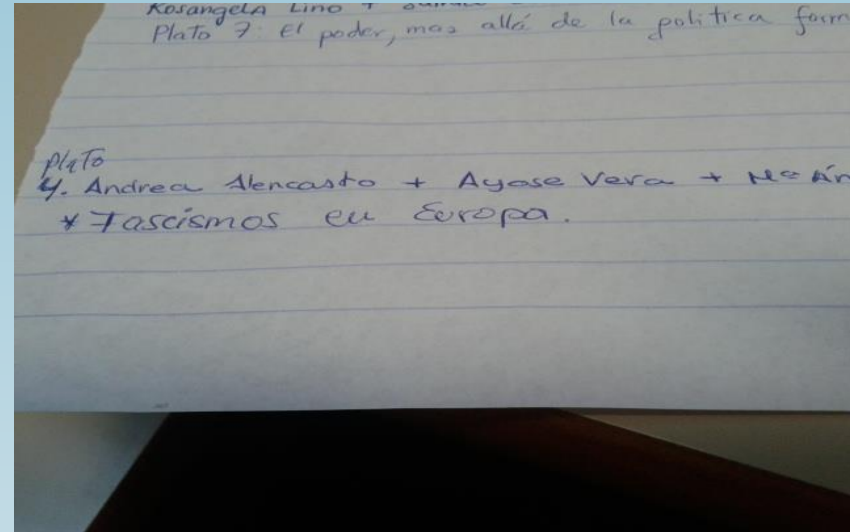 Rosangela Lino +
Plato 7: el poder, mas allá de la politica form
Plato
4. Andrea Alencasto + Ayase Vera + Mª Án
* Fascismos en Europa.